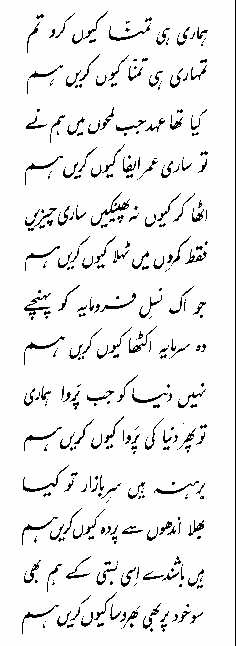 ہماری ہی تمنّا کیوں کرو تم
تمہاری ہی تمنّا کیوں کریں ہم
کیا تھا عہد جب لمحوں میں ہم نے
تو ساری عمر ایفا کیوں کریں ہم
اٹھا کر کیوں نہ پھینکیں ساری چیزیں
فقط کمروں میں ٹہلا کیوں کریں ہم
جو اک نسل فرومایہ کو پہنچے
وہ سرمایہ اکٹھا کیوں کریں ہم
نہیں دنیا کو جب پَروا ہماری
تو پھر دنیا کی پَروا کیوں کریں ہم
برہنہ ہیں سرِبازار تو کیا
بھلا اندھوں سے پردہ کیوں کریں ہم
ہیں باشندے اِسی بستی کے ہم بھی
سو خود پر بھی بھروسا کیوں کریں ہم